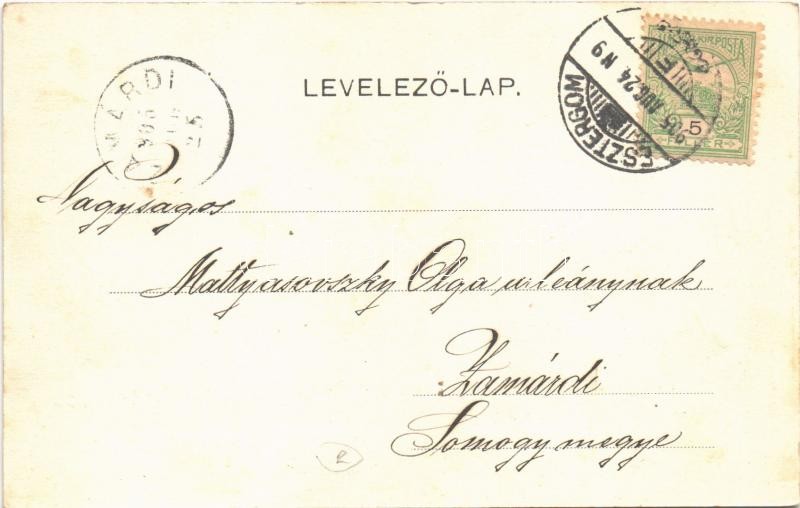 LEVELEZŐ-LAP.
ESZTERGOM
905 AUG. 24. N9
KIR. POSTA
5
FILLÉR
AMÁRDI
905
25
Nagyságos
Mattyasovszky Olga urleánynak
Zamárdi
Somogy megye
R